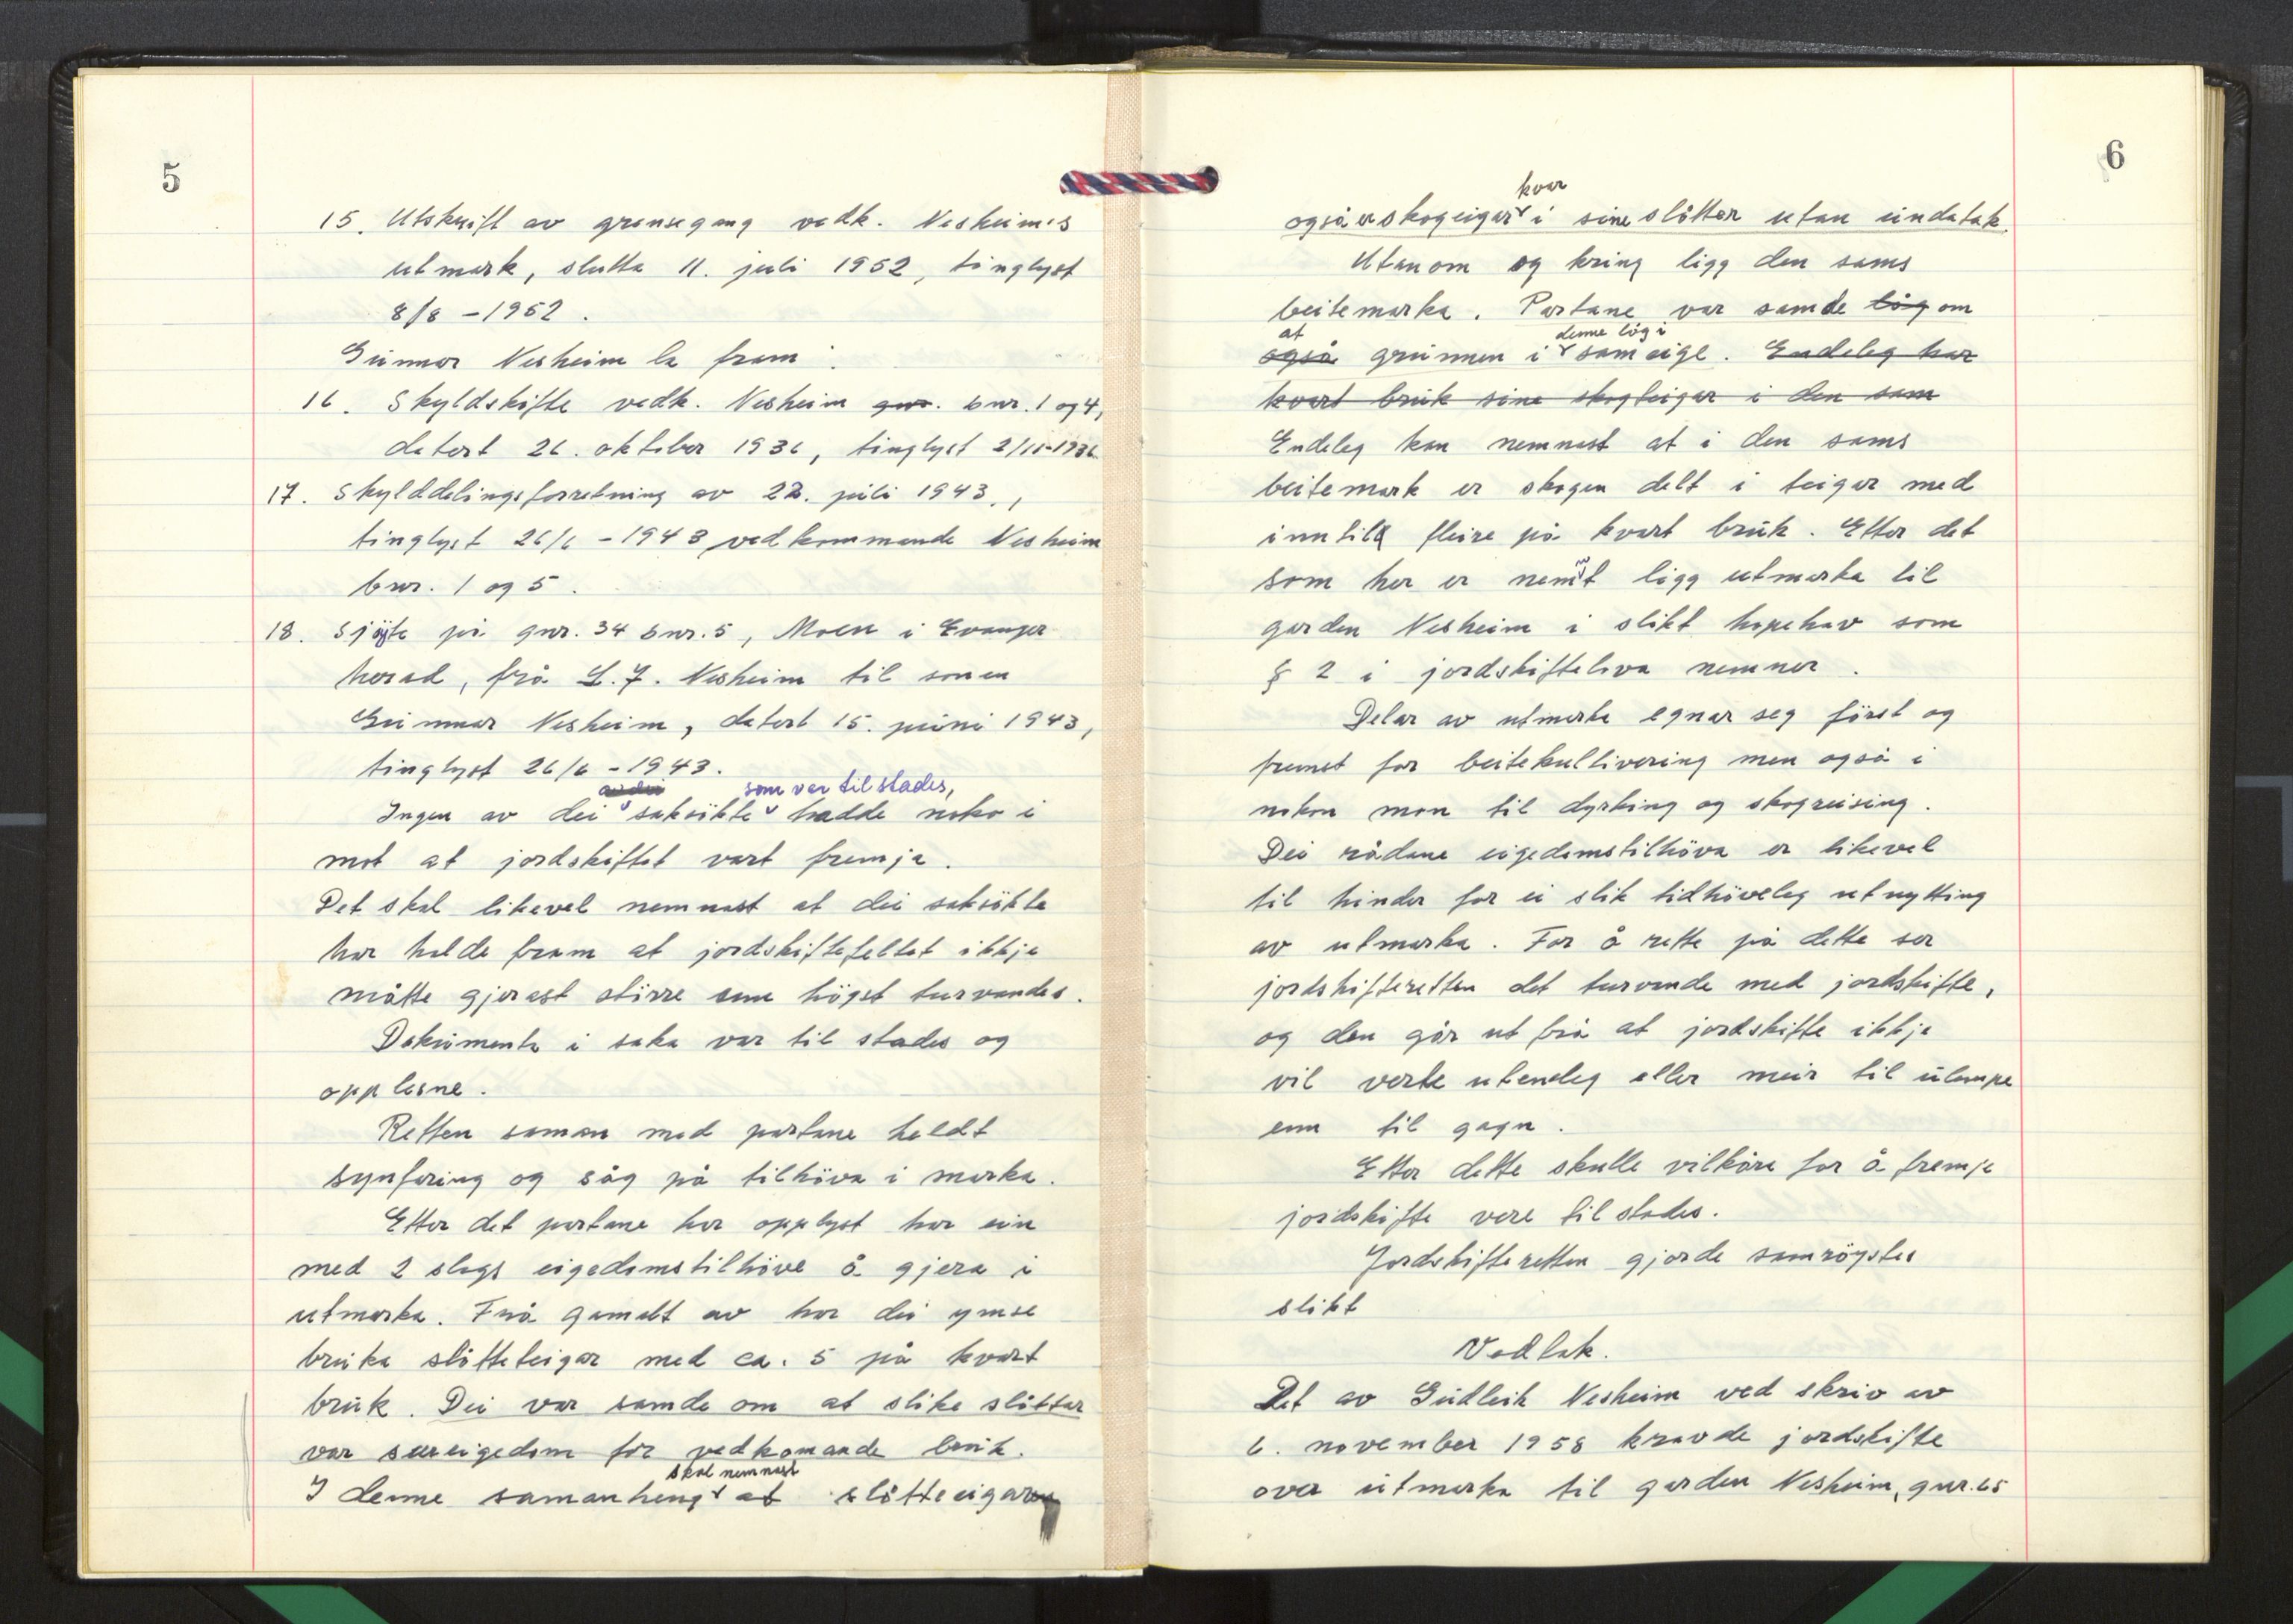 5
15. Utskrift av grensegang vedk. Nesheims
utmark, slutta 11. juli 1952, tinglyst
8/8 - 1952.
Gunnar Nesheim la fram:
16. Skyldskifte vedk. Nesheim gnr. bnr. 1 og 4,
datert 26. oktober 1936, tinglyst 2/11-1936
17. Skylddelingsforretning av 22. juli 1943.,
tinglyst 26/6 - 1943 vedkommande Nesheim
bnr. 1 og 5.
18. Skjøte på gnr. 34 bnr. 5, Moen i Evanger
herad, frå L. J. Nesheim til sonen
Gunnar Nesheim, datert 15. juni 1943,
tinglyst 26/6 - 1943.
som var til stades,
Ingen av dei saksökte hadde noko i
mot at jordskiftet vart fremja.
Det skal likevel nemnast at dei saksökte
har halde fram at jordskiftefeltet ikkje
måtte gjerast större enn högst turvandes.
Dokumenta i saka var til stades og
opplesne.
Retten saman med partane heldt
synfaring og såg på tilhöva i marka.
Etter det partane har opplyst har ein
med 2 slags eigedomstilhöve å gjera i
utmarka. Frå gamalt av har dei ymse
bruka slåtteteigar med ca. 5 på kvart
bruk. Dei var samde om at slike slåtter
var særeigedom for vedkomande bruk.
skal nemnast
I denne samanheng at slåtteeigaren
6
kvar
også er skogeigar i sine slåtter utan eindatak.
Utanom og kring ligg den sams
beitemarka. Partane var samde låg om
at denne låg i
også grunnen i sameige. Endeleg har
kvart bruk sine skogteigar i den sam
Endeleg kan nemnast at i den sams
beitemark er skogen delt i teigar med
inntil fleire på kvart bruk. Etter det
som her er nemnt ligg utmarka til
garden Nesheim i slikt hopehav som
§ 2 i jordskiftelova nemner.
Delar av utmarka egnar seg först og
fremst for beitekultivering men også i
nokon mon til dyrking og skogreising.
Dei rådane eigedomstilhöva er likevel
til hinder for ei slik tidhöveleg utnytting
av utmarka. For å rette på dette ser
jordskifteretten det turvande med jordskifte,
og den går ut frå at jordskifte ikkje
vil verte utenleg eller meir til ulempe
enn til gagn.
Etter dette skulle vilkåra for å fremje
jordskifte vere til stades.
Jordskifteretten gjorde samröystes
slikt
Vedtak.
Det av Gudleik Nesheim ved skriv av
6. november 1958 kravde jordskifte
over utmarka til garden Nesheim, gnr. 65